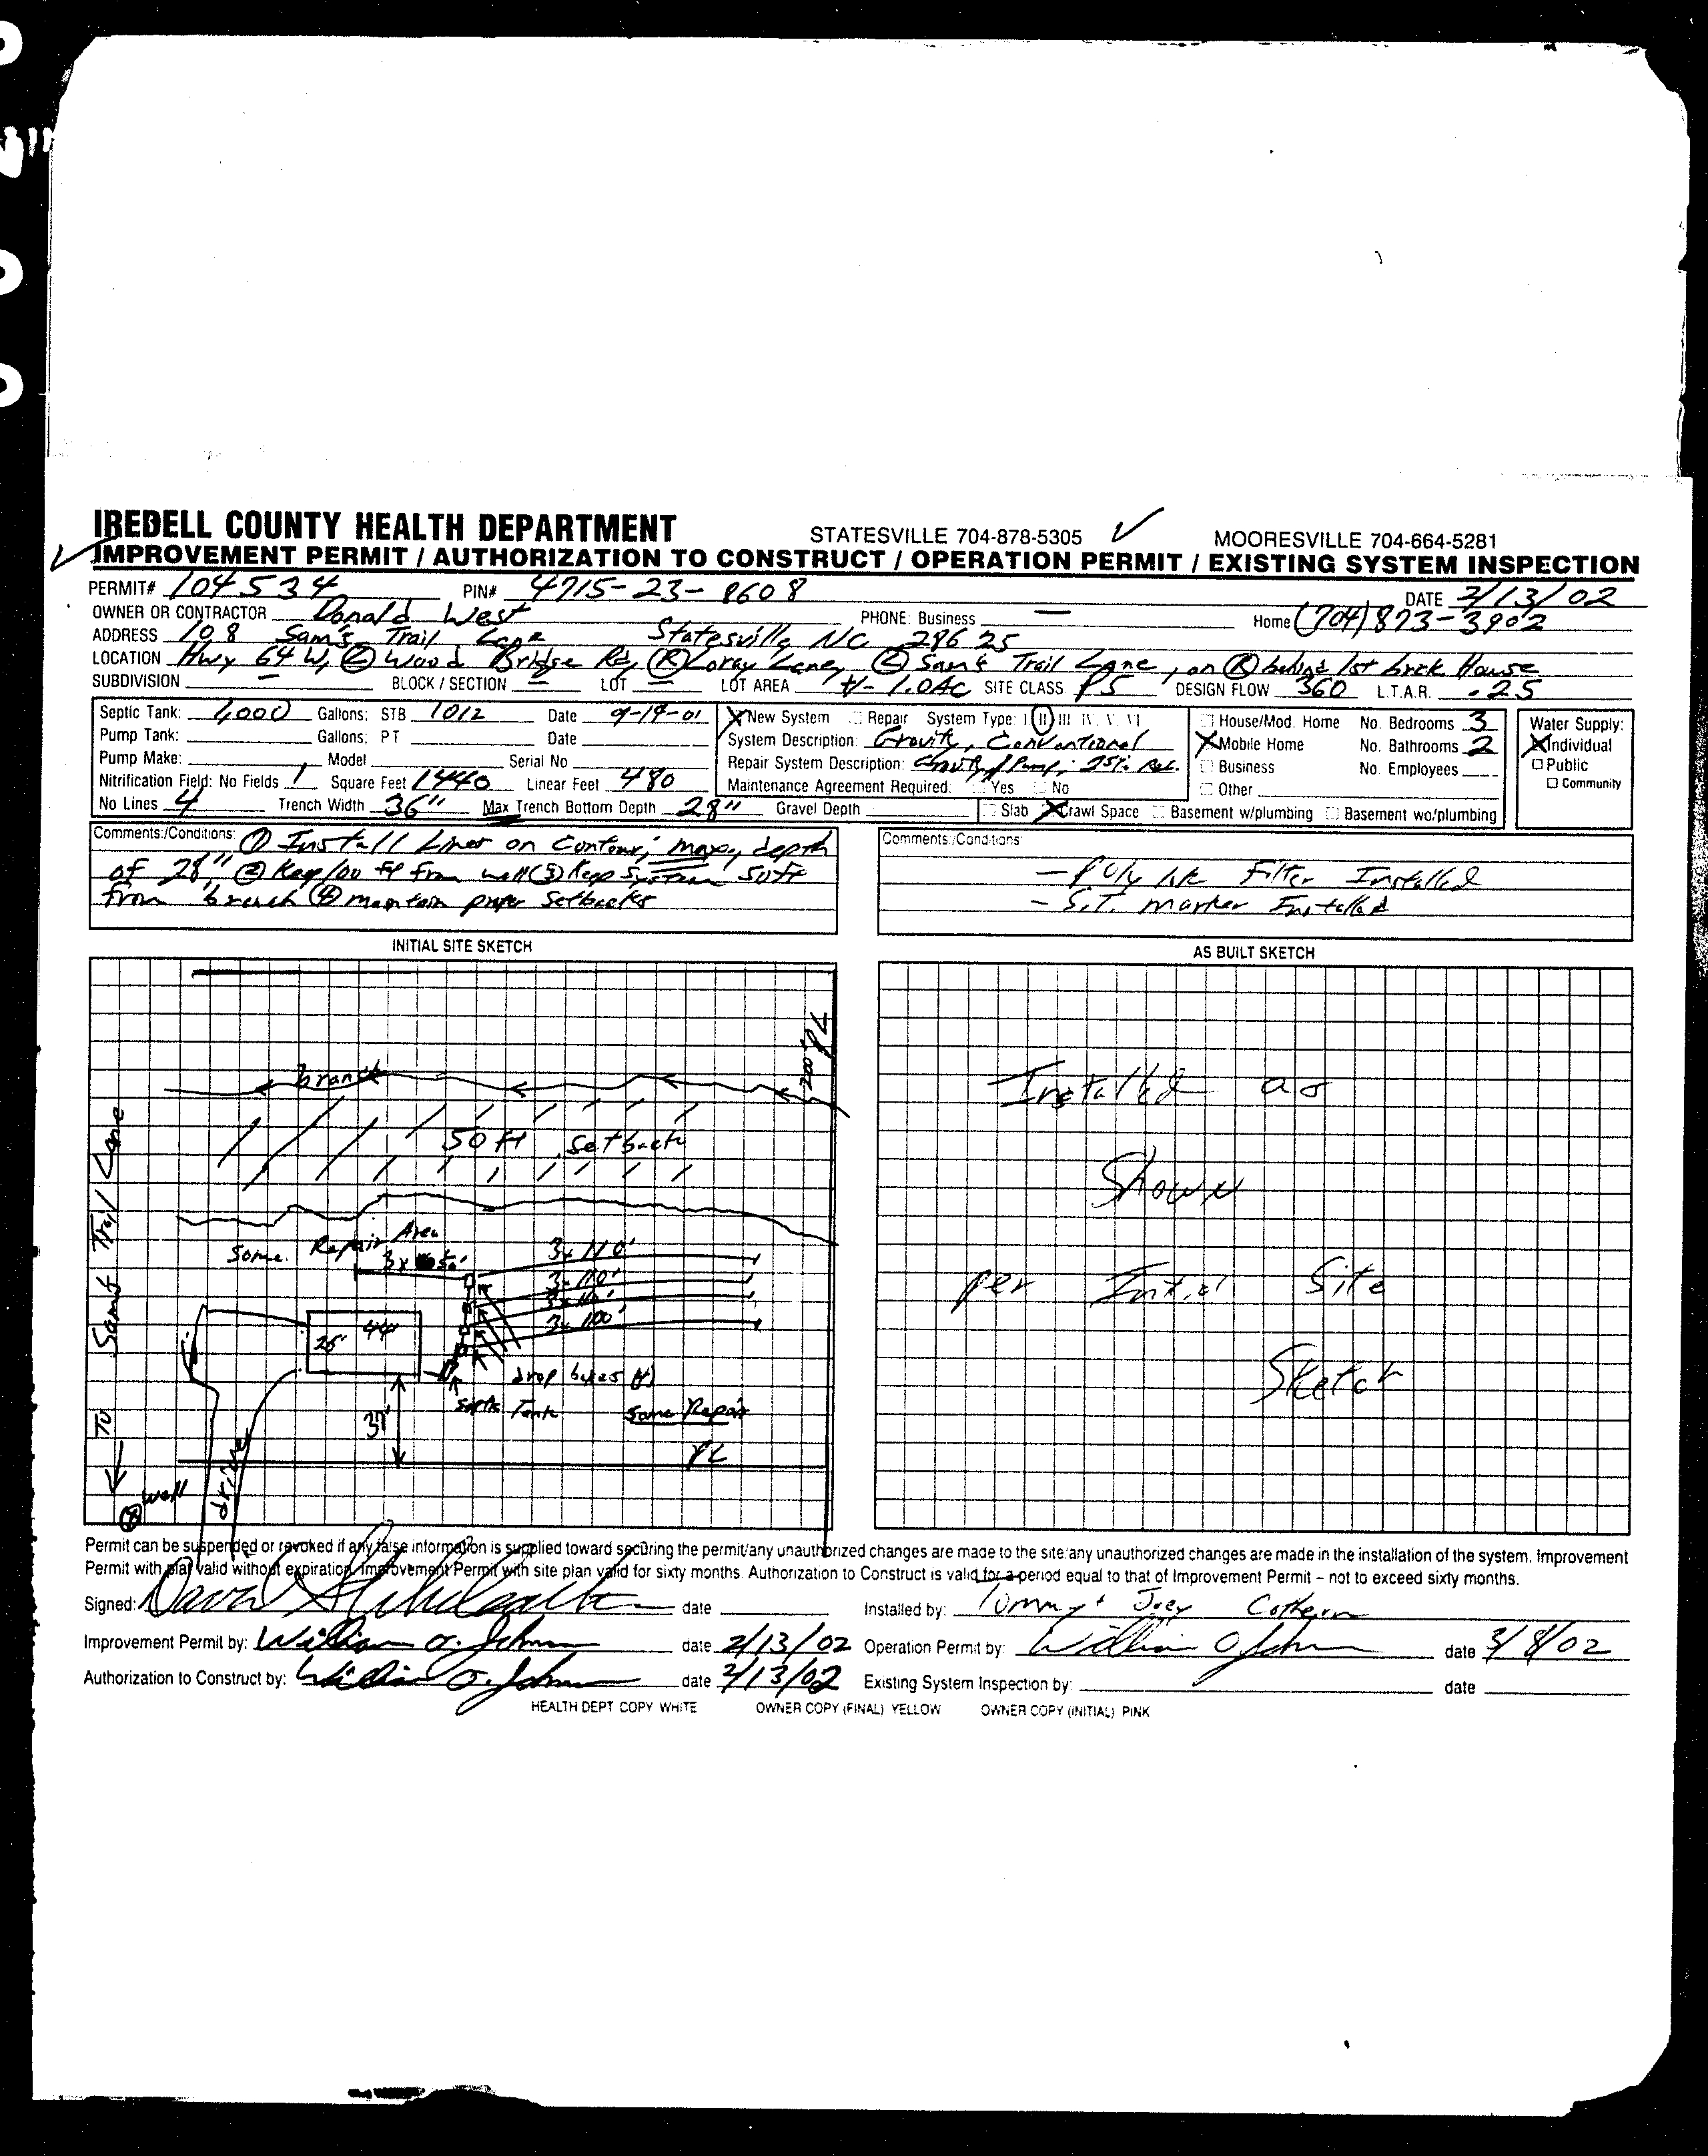 IREDELL COUNTY HEALTH DEPARTMENT STATESVILLE 704-878-5305 MOORESVILLE 704-664-5281
IMPROVEMENT PERMIT / AUTHORIZATION TO CONSTRUCT / OPERATION PERMIT / EXISTING SYSTEM INSPECTION
PERMIT# 104534 PIN# 4715-23-8608 DATE 2/13/02
OWNER OR CONTRACTOR Donald West PHONE: Business — Home (704) 873-3902
ADDRESS 108 Sam's Trail Lane Statesville, NC 28625
LOCATION Hwy 64 W, (L) Wood Bridge Rd, (R) Loray Lane, (L) Sam's Trail Lane, on (R) behind 1st brick House
SUBDIVISION — BLOCK / SECTION — LOT — LOT AREA +/- 1.0AC SITE CLASS PS DESIGN FLOW 360 L.T.A.R. .25
Septic Tank: 1,000 Gallons: STB 1012 Date 9-19-01
Pump Tank: Gallons: PT Date
Pump Make: Model Serial No
Nitrification Field: No Fields 1 Square Feet 1440 Linear Feet 480
No Lines 4 Trench Width 36" Max Trench Bottom Depth 28" Gravel Depth
X New System Repair System Type: I II III IV V VI
System Description: Gravity, Conventional
Repair System Description: Gravity / Pump; 25% Red.
Maintenance Agreement Required: Yes No
Slab X Crawl Space Basement w/plumbing Basement wo/plumbing
House/Mod. Home No. Bedrooms 3
X Mobile Home No. Bathrooms 2
Business No. Employees
Other
Water Supply:
X Individual
Public
Community
Comments:/Conditions: ① Install Lines on Contour; max, depth
of 28" ② Keep 100 ft from well ③ Keep System 50ft
from branch ④ maintain proper setbacks
Comments:/Conditions:
- Poly lok Filter Installed
- S.T. marker Installed
INITIAL SITE SKETCH
200' PL
branch
50 ft setback
Some Repair Area
3x 50'
3x 110'
3x 110'
3x 110'
3x 100'
26' 44'
drop boxes (4)
Septic Tank
Some Repair
37'
PL
To Sam's Trail Lane
well
drive
AS BUILT SKETCH
Installed as
Shown
per Initial Site
Sketch
Permit can be suspended or revoked if any false information is supplied toward securing the permit/any unauthorized changes are made to the site/any unauthorized changes are made in the installation of the system. Improvement
Permit with plat valid without expiration. Improvement Permit with site plan valid for sixty months. Authorization to Construct is valid for a period equal to that of Improvement Permit – not to exceed sixty months.
Signed: date Installed by: Tommy + Joey
Improvement Permit by: William O. date 2/13/02 Operation Permit by: William O date 3/8/02
Authorization to Construct by: William O. date 2/13/02 Existing System Inspection by: date
HEALTH DEPT COPY WHITE OWNER COPY (FINAL) YELLOW OWNER COPY (INITIAL) PINK